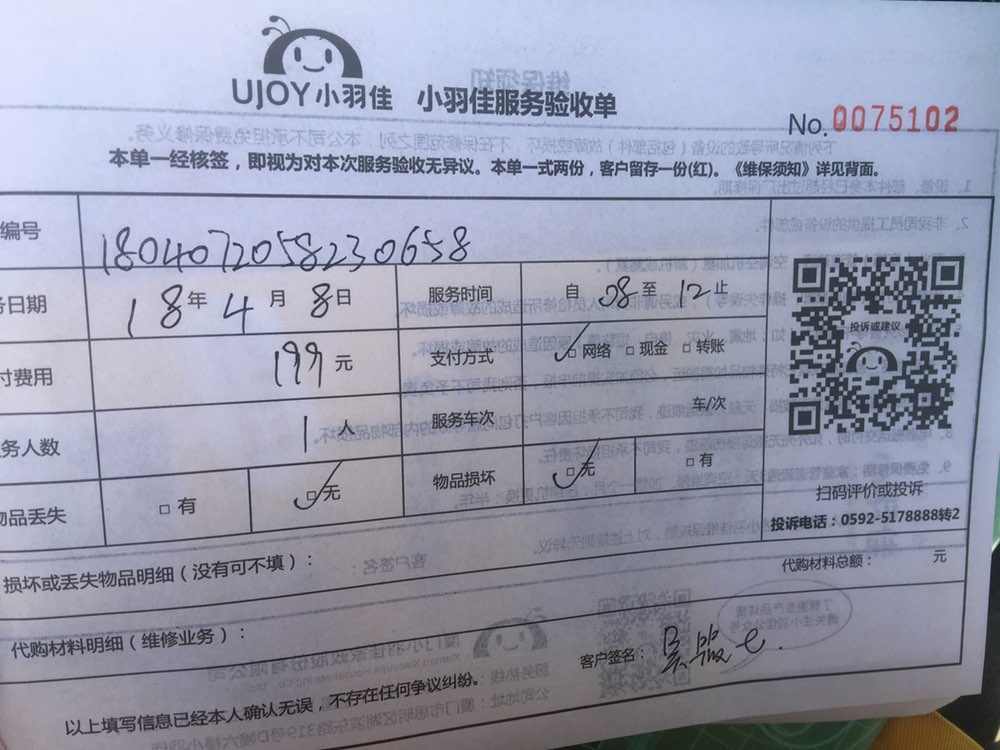 UJOY小羽佳 小羽佳服务验收单
No.0075102
本单一经核签,即视为对本次服务验收无异议。本单一式两份,客户留存一份(红)。《维保须知》详见背面。
编号 1804072058230658
务日期 18年4月8日 服务时间 自08至12止
付费用 199元 支付方式 ☑网络 □现金 □转账
投诉或建议
务人数 1人 服务车次 车/次
物品丢失 □有 ☑无 物品损坏 ☑无 □有
扫码评价或投诉
投诉电话:0592-5178888转2
损坏或丢失物品明细(没有可不填): 代购材料总额: 元
代购材料明细(维修业务):
客户签名:
以上填写信息已经本人确认无误,不存在任何争议纠纷。